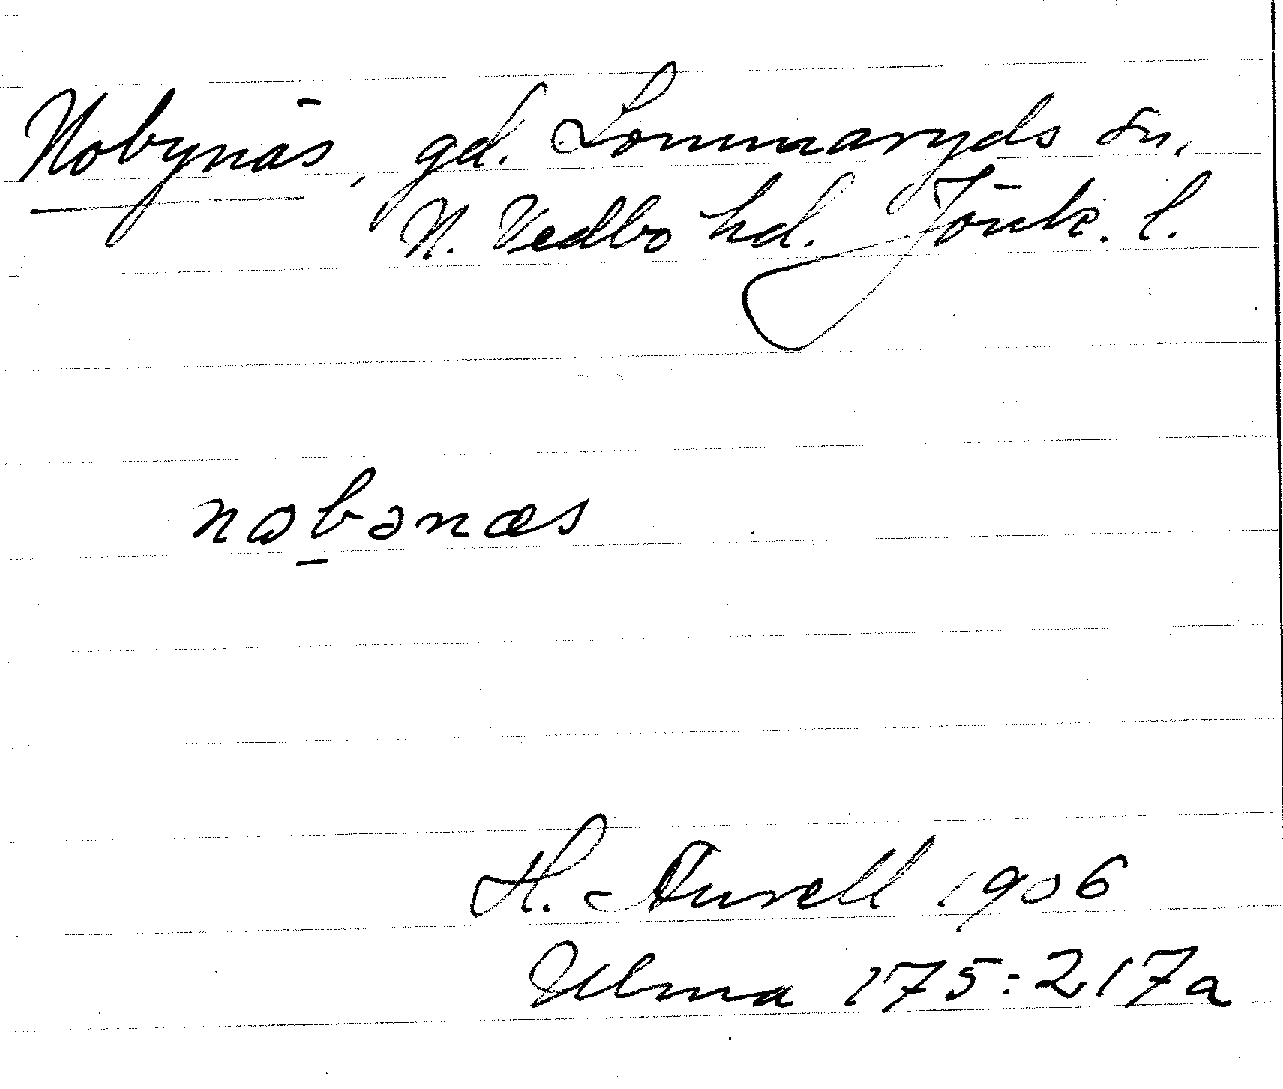 Nobynäs, gd. Lommaryds sn,
N. Vedbo hd. Jönk. l.
nɷbənæs
H. Aurell 1906
Ulma 175:217a